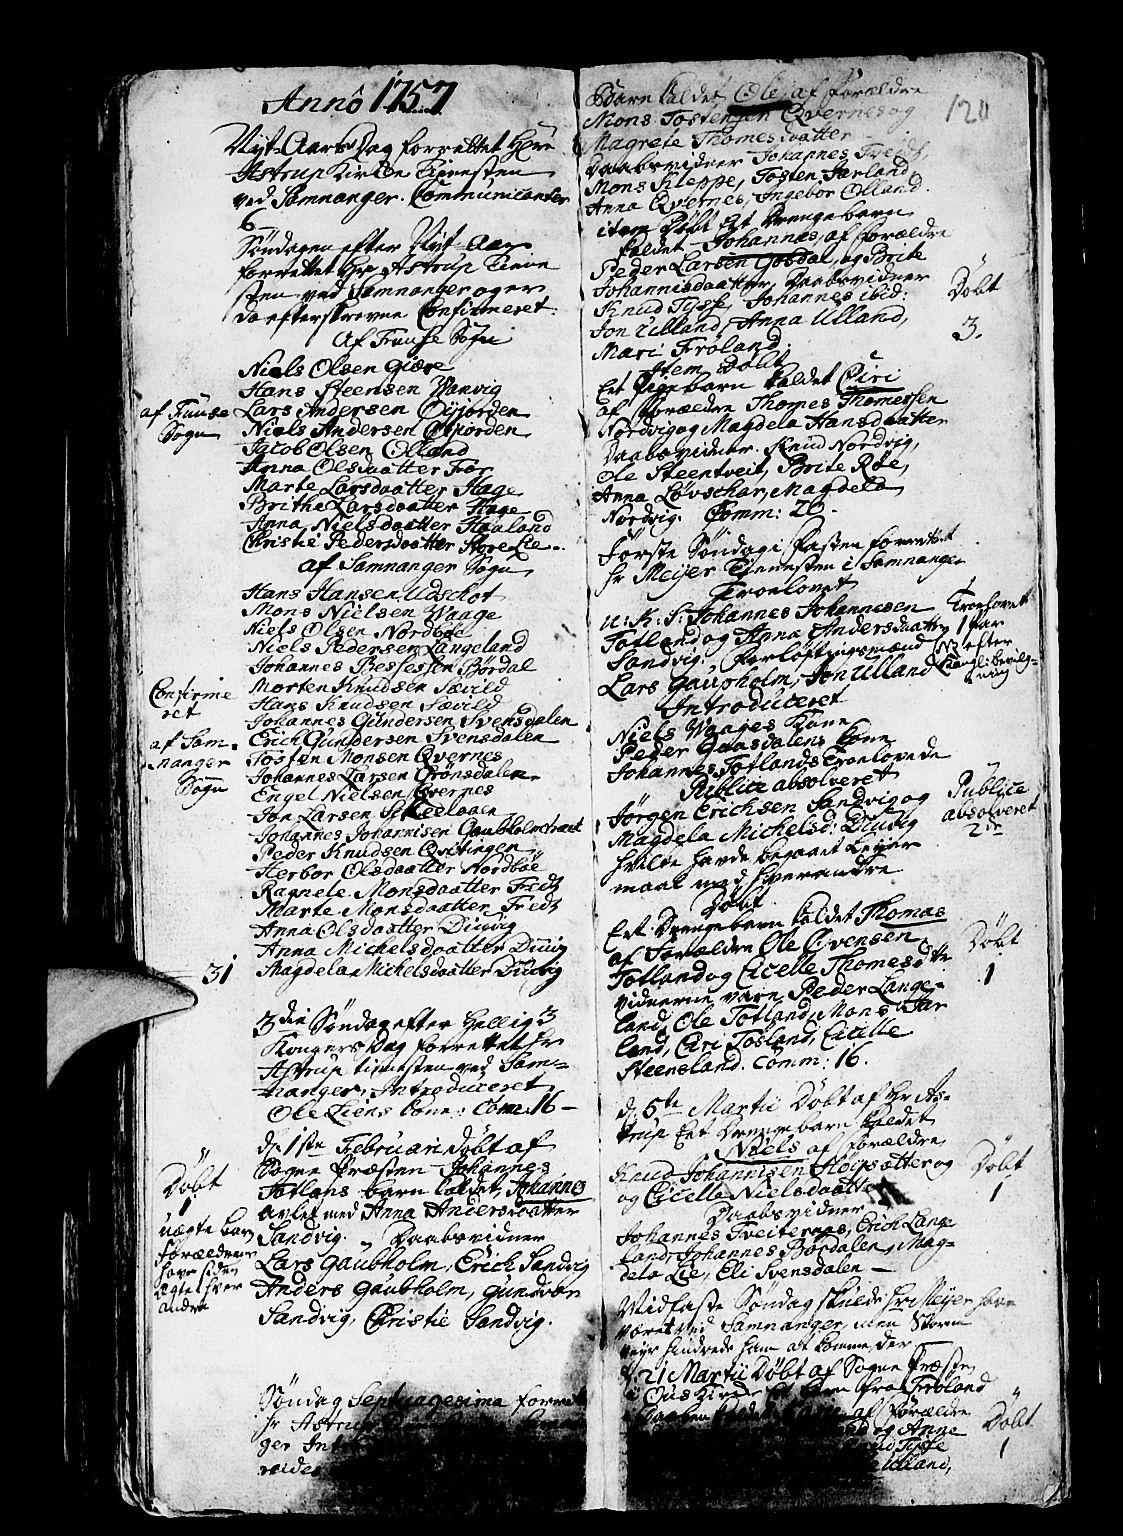 Annô 1757
Nyt-Aars Dag forrettet Herr
Astrup Kirke Tienesten
ved Samnanger. Communicanter
6 -
Søndagen efter Nyt-Aar
forrettet Hr Astrup Tiene
sten ved Samnanger og er
da efterskrevne Confirmeret
Af Fuuse Sogn
Niels Olsen Giære
Hans Steensen Wanvig
af Fuuse
Sogn
Lars Andersen Øvjorden
Niels Andersen Øvjorden
Jacob Olsen Ølland
Anna Olsdaatter
Marte Larsdaatter Hage
Brithe Larsdaatter Hage
Anna Nielsdaatter Haaland
Christi Pedersdaatter Store Lie
af Samnanger Sogn
Hans Hansen Udskot
Mons Nielsen Waage
Niels Olsen Nordbøe
Niels Pedersen Langeland
Johannes Bessesen Børdal
Confirme
ret
af Sam-
nanger
Sogn
Morten Knudsen Sævild
Hans Knudsen Sævild
Johannes Gundersen Svensdalen
Erich Gundersen Svensdalen
Tosten Monsen Qvernes
Johannes Larsen Grønsdalen
Engel Nielsen Qvernes
Jon Larsen
Johannes Johannisen Gaubholmstræet
Peder Knudsen Qvitingen
Herbor Olsdaatter Nordbøe
Ragnele Monsdaatter Fridz
Marte Monsdaatter Fridz
Anna Olsdaatter Diuvig
Anna Michelsdaatter Diuvig
31 Magdela Michelsdaatter Diuvig
3die Søndag efter Hellig 3
Kongers Dag forrettet Hr
Astrup tienesten ved Sam-
nanger, Introduceret
Ole Liens kone: Com: 16 -
d. 1ste Februari døbt af
Sogne Præsten Johannes
Totlans barn kaldet Johannes
avlet med Anna Andersdaatter
Sandvig. Daabsvidner
Lars Gaubholm, Erich Sandvig
Anders Gaubholm, Gundvor
Sandvig, Christie Sandvig.
Døbt
1
uægte barn
forældrene
have siden
ægtet hver
andre
Søndag Septuagesima forret
Hr Astrup
ger Int
vides
120
Barn kaldet Ole af forældre
Mons Tostensen Qvernes og
Magrete Thomesdaatter
Daabsvidner Johannes Tveit,
Mons Kleppe, Tosten Jarland,
Anna Qvernes, Ingebor Ølland.
item Døbt Et Drengebarn
kaldet Johannes, af forældre
Peder Larsen Gosdal, og Brite
Johannisdaatter, Daabsvidner
Knud Tysse, Johannes ibid:
Jon Ulland, Anna Ulland,
Mari Frøland.
Døbt
3.
Item Døbt
Eet Pigebarn kaldet Ciri
af forældre Thomes Thomessen
Nordvig og Magdela Hansdaatter
Daabsvidner. Knud Nordvig,
Ole Steentveit, Brite Røe,
Anna Løvschar, Magdela
Nordvig. Comm: 20.
Første Søndag i Fasten forrettet
Hr Meijer Tienesten i Samnanger
Troelovet
u: K: S: Johannes Johannesen
Totland og Anna Andersdaatter
Sandvig. Forlofningsmænd
Lars Gaupholm, Jon Ulland
Troelovet
1 Par
NB efter
Kongl: bevilg-
ning
Introduceret
Niels Waages Kone
Peder Gaasdalens kone
Johannes Totlands Troelovede
Publice absolveret
Jørgen Erichsen Sandvig og
Magdela Michelsd: Diuvig
hvilke havde begaaet Leyer
maal med hverandre
Publice
absolveret
2de
Døbt
Eet Drengebarn kaldet Thomas
af Forældre Ole Ivensen
Totland og Cicelle Thomesdttr
vidnerne vare Peder Lange-
land, Ole Totland, Mons Jar
land, Ciri Totland, Cicelle
Steensland. Comm: 16.
Døbt
1
d. 5te Martii Døbt af Hr As-
trup Eet Drengebarn kaldet
Niels af forældre
Knud Johannisen Høysætter og
og Cicella Nielsdaatter
Daabsvidner
Johannes Tveiteraas, Erich Lange
land, Johannes Børdalen, Mag-
dela Lie, Eli Svensdalen -
Døbt
1
Midfaste Søndag skulde Hr Meijer have
været ved Samnanger, men Storm
veyr hindrede ham at komme der
d. 21 Martii Døbt af Sogne Præsten
i Ous Kirke Et barn fra Frøland
af forældre
og Anne
Knud Tysse
Ulland,
Døbt
1